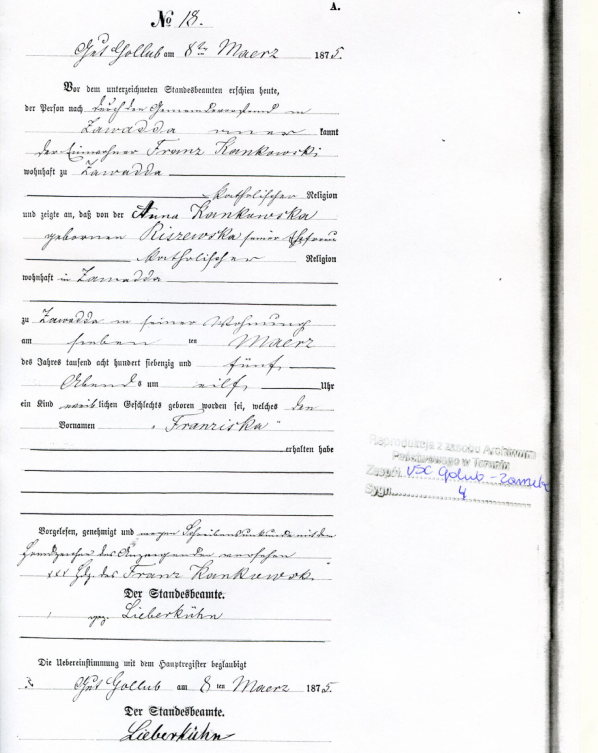 A.
No 18.
Gut Gollub am 8ten Maerz 1875.
Vor dem unterzeichneten Standesbeamten erschien heute,
der Person nach durch den Gemeindevorstand in
Zawadda kannt
der Einwohner Franz Kankowski
wohnhaft zu Zawadda
katholischer Religion
und zeigte an, daß von der Anna Kankowska
gebornen Riszewska seiner Ehefrau
katholischer Religion
wohnhaft in Zawadda
zu Zawadda in seiner Wohnung
am sieben ten Maerz
des Jahres tausend acht hundert siebenzig und fünf
Abends um eilf Uhr
ein Kind weiblichen Geschlechts geboren worden sei, welches den
Vornamen „Franziska"
erhalten habe
Vorgelesen, genehmigt und wegen Schreibensunkunde mit den
Handzeichen des Anzeigenden versehen
xxx Hdz. des Franz Kankowski.
Der Standesbeamte.
gez. Lieberkühn
Die Uebereinstimmung mit dem Hauptregister beglaubigt
Gut Gollub am 8 ten Maerz 1875.
Der Standesbeamte.
Lieberkühn
Reprodukcja z zasobu Archiwum
Państwowego w Toruniu
Zespół USC Golub-Zamek
Sygn. 4